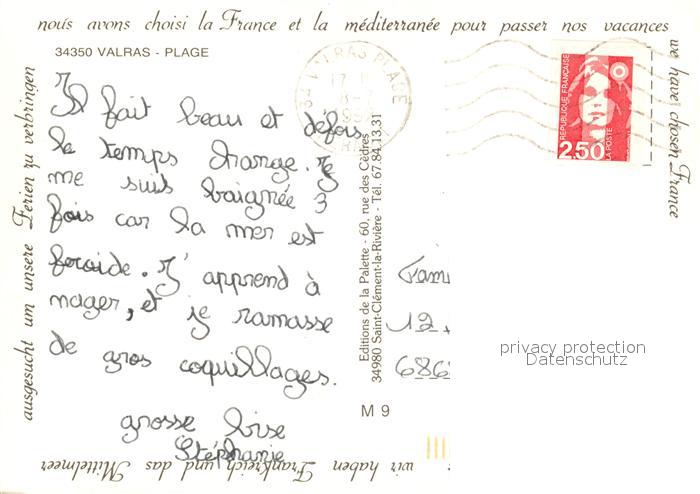 nous avons choisi la France et la méditerranée pour passer nos vacances
we have chosen France
34350 VALRAS - PLAGE
34 VALRAS PLAGE
RÉPUBLIQUE FRANÇAISE
LA POSTE
2,50
Il fait beau et défois
le temps change. Je
me suis baignée 3
fois car la mer est
froide. J'apprend à
nager, et je ramasse
de gros coquillages.
grosse bise
Stéphanie
Editions de la Palette - 60, rue des Cèdres
34980 Saint-Clément-la-Rivière - Tél. 67.84.13.31
12
686
privacy protection
Datenschutz
M 9
wir haben Frankreich und das Mittelmeer
ausgesucht um unsere Ferien zu verbringen